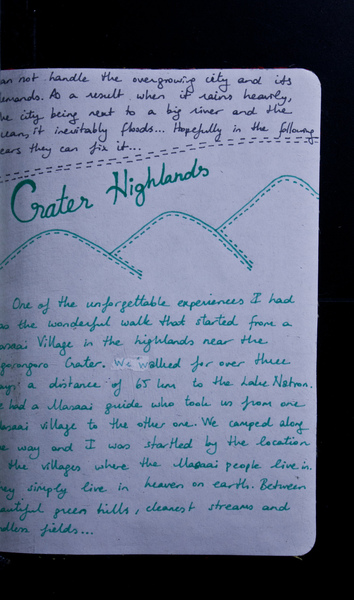 an not handle the overgrowing city and its
emands. As a result when it rains heavily,
he city being next to a big river and the
cean, it inevitably floods... Hopefully in the following
ears they can fix it...
Crater Highlands
One of the unforgettable experiences I had
as the wonderful walk that started from a
aasai Village in the highlands near the
gorongoro Crater. We walked for over three
ays a distance of 65 km to the Lake Natron.
e had a Maasai guide who took us from one
aasai village to the other one. We camped along
e way and I was startled by the location
the villages where the Maasai people live in.
hey simply live in heaven on earth. Between
eautiful green hills, cleanest streams and
ndless fields...